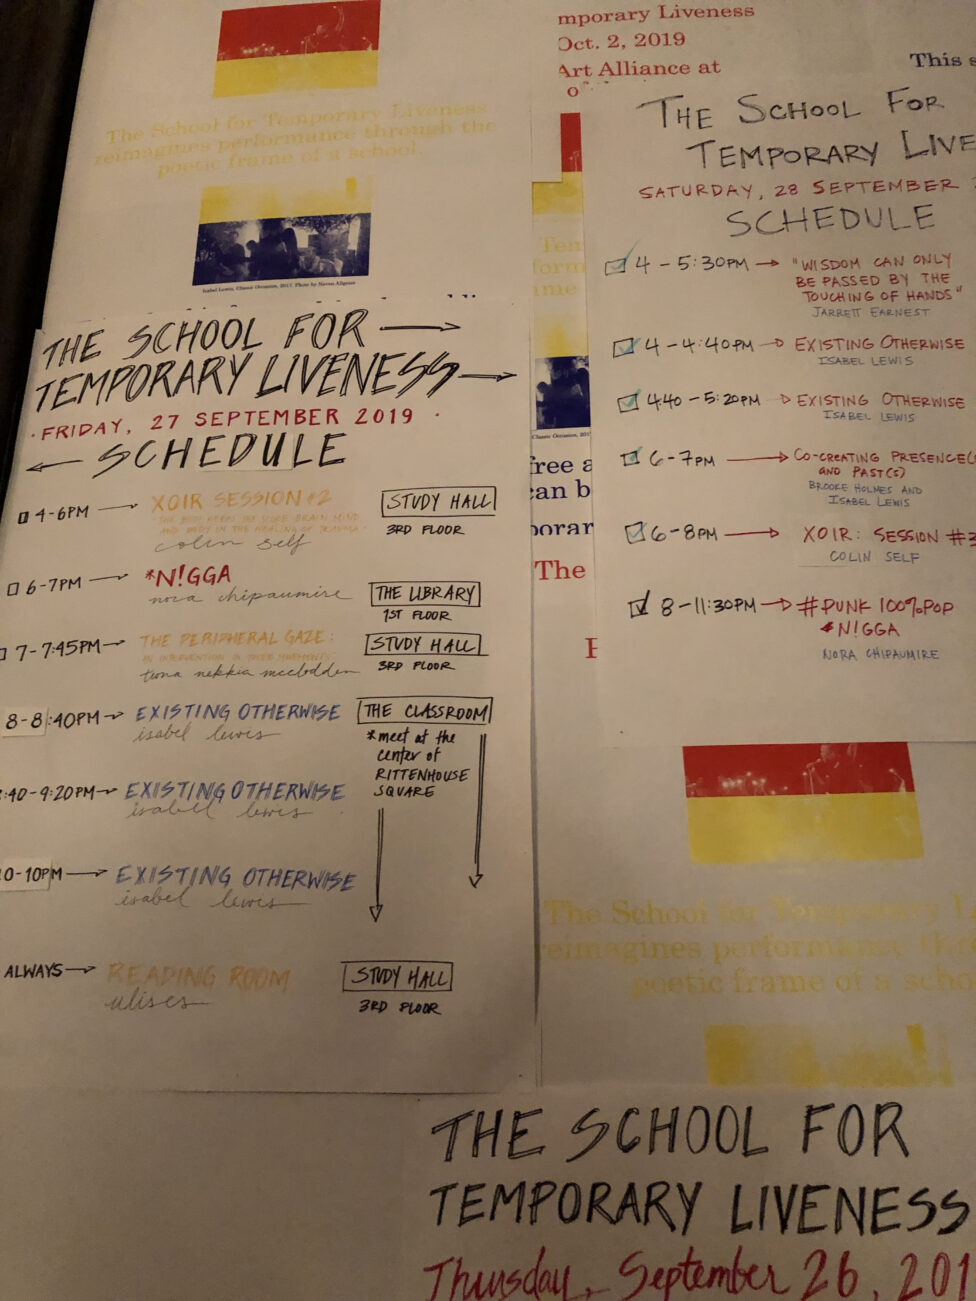 The School for Temporary Liveness
reimagines performance through the
poetic frame of a school.
Isabel Lewis, Classic Occasion, 2017. Photo by
THE SCHOOL FOR
TEMPORARY LIVENESS
· FRIDAY, 27 SEPTEMBER 2019 ·
SCHEDULE
4-6PM XOIR SESSION #2 STUDY HALL
3RD FLOOR
colin self
6-7PM *N!GGA
nora chipaumire THE LIBRARY
1ST FLOOR
7-7:45PM THE PERIPHERAL GAZE: STUDY HALL
3RD FLOOR
tiona nekkia mcclodden
8-8:40PM EXISTING OTHERWISE THE CLASSROOM
isabel lewis
*meet at the
center of
RITTENHOUSE
SQUARE
:40-9:20PM EXISTING OTHERWISE
isabel lewis
0-10PM EXISTING OTHERWISE
isabel lewis
ALWAYS READING ROOM STUDY HALL
ulises 3RD FLOOR
mporary Liveness
Oct. 2, 2019
Art Alliance at
This s
THE SCHOOL FOR
TEMPORARY LIVE
SATURDAY, 28 SEPTEMBER
SCHEDULE
4-5:30PM "WISDOM CAN ONLY
BE PASSED BY THE
TOUCHING OF HANDS"
JARRETT EARNEST
4-4:40PM EXISTING OTHERWISE
ISABEL LEWIS
4:40-5:20PM EXISTING OTHERWISE
ISABEL LEWIS
6-7PM CO-CREATING PRESENCE(S
AND PAST(S)
BROOKE HOLMES AND
ISABEL LEWIS
6-8PM XOIR: SESSION #3
COLIN SELF
8-11:30PM #PUNK 100%POP
*N!GGA
NORA CHIPAUMIRE
Tem
form
ame
Classic Occasion, 201
free a
can b
porar
The
The School for Temporary Li
reimagines performance thr
poetic frame of a scho
THE SCHOOL FOR
TEMPORARY LIVENESS
Thursday, September 26, 201